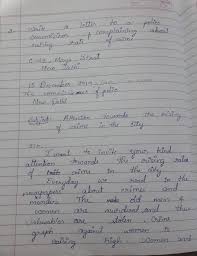 Write a letter to a police
commissioner complaining about
rising rate of crime
New Delhi
15 December
The commissioner of police
New Delhi
Subject: Attention towards the rising
of crimes in the City
Sir,
I want to invite your kind
attention towards the rising rate
of crimes in the City.
Everyday we read in the
newspapers about crimes and
murders. The old men &
women are murdered and their
valuables are stolen. Crime
graph against women is
raising high. Women and